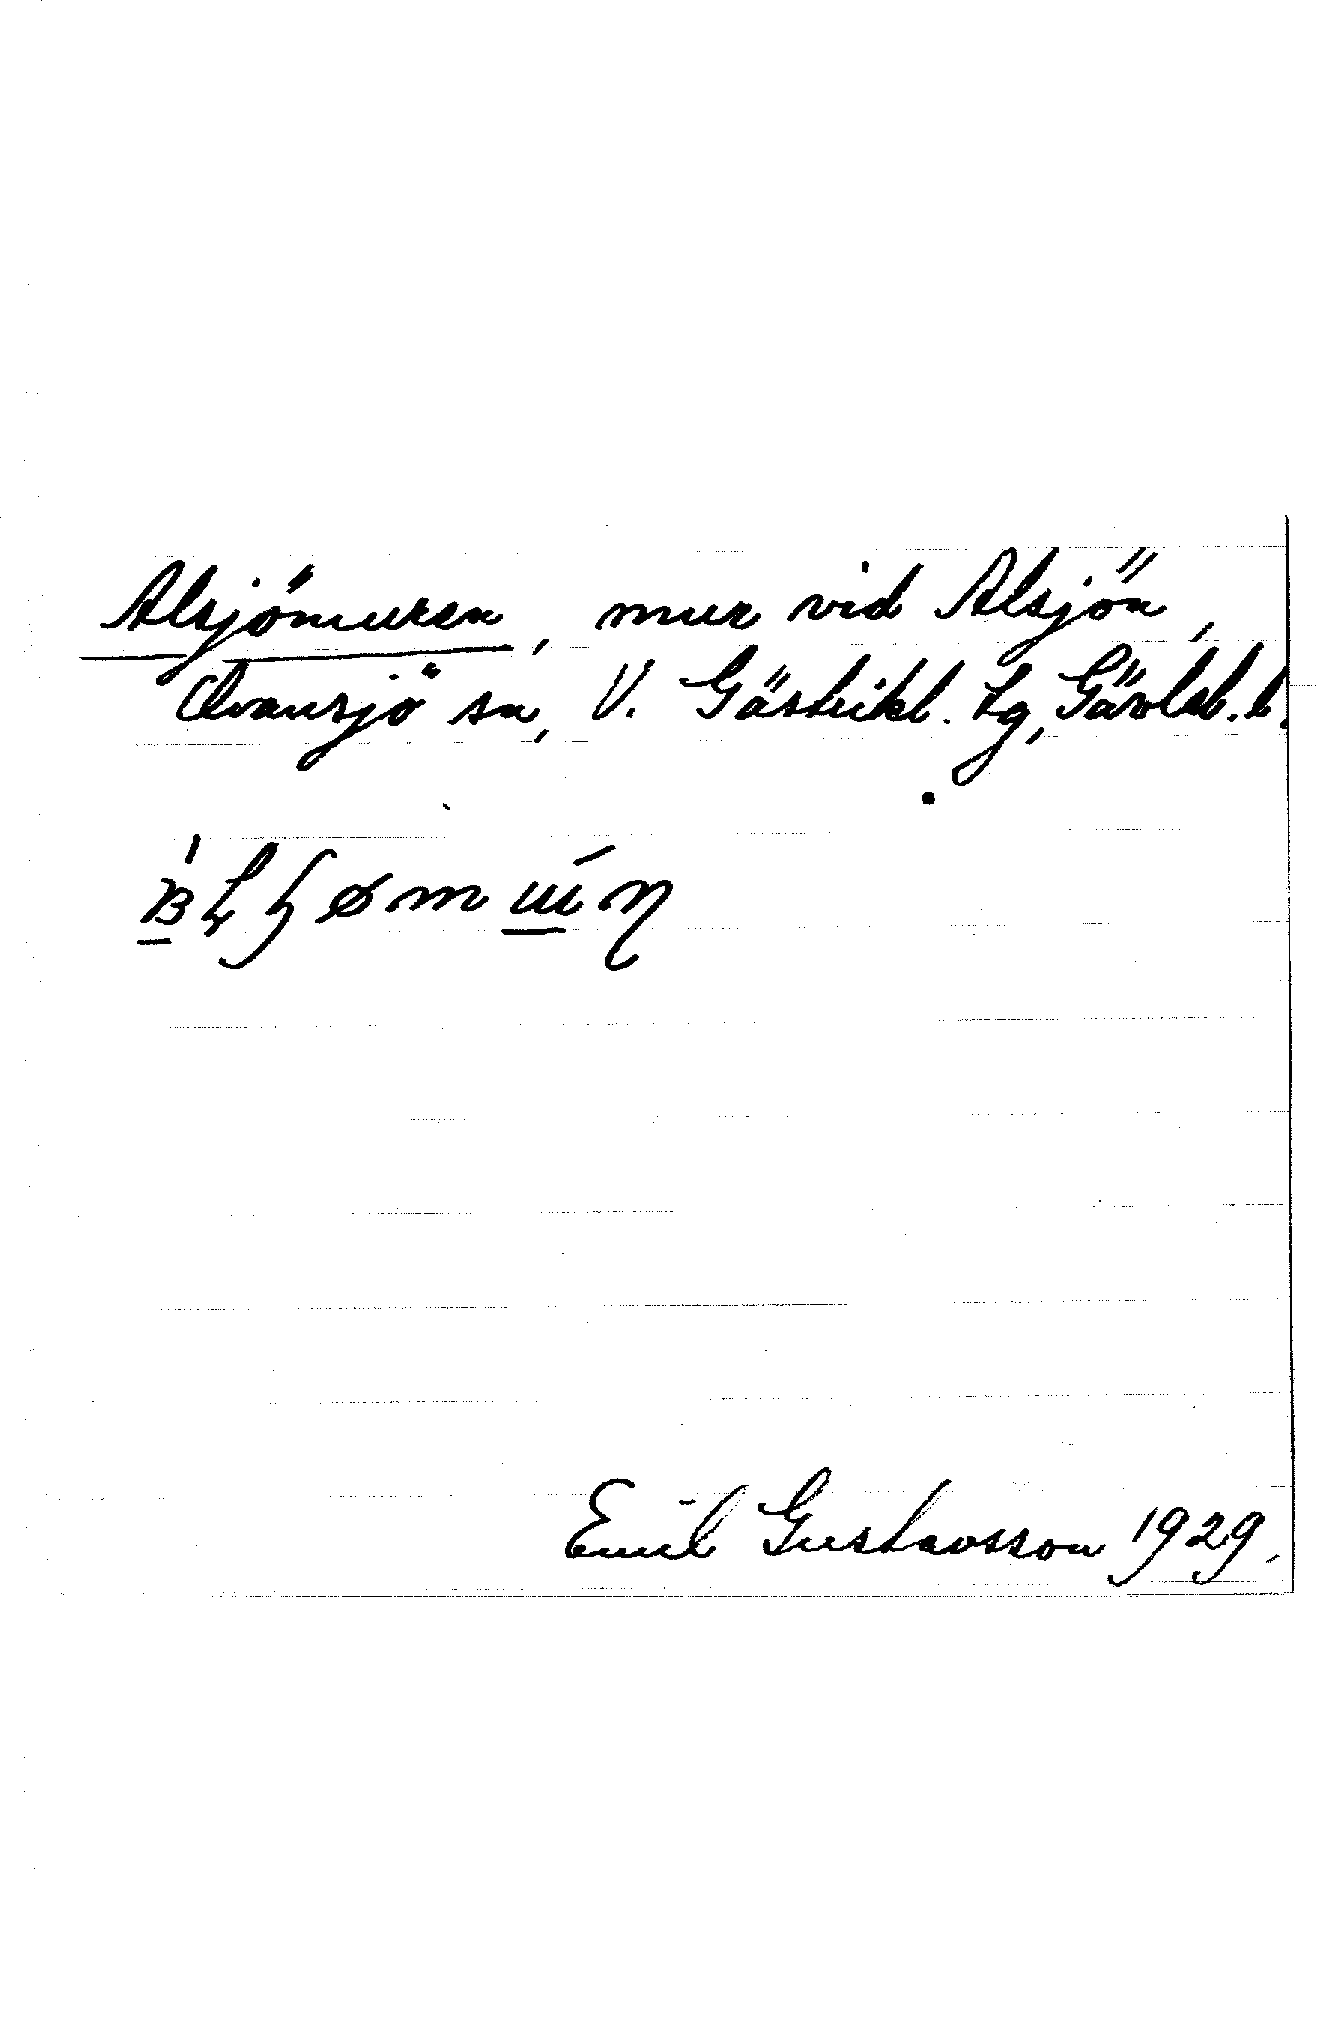 Alsjömuren, mur vid Alsjön,
Ovansjö sn, V. Gästrikl. tg, Gävleb. l.
Emil Gustavsson 1929.